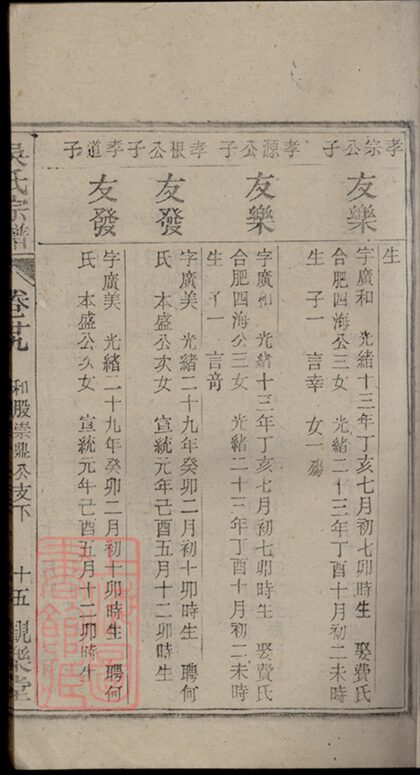 孝宗公子
孝源公子
孝根公子
孝道公子
生
友樂
字廣和 光緒十三年丁亥七月初七卯時生 娶費氏
合肥四海公三女 光緒二十三年丁酉十月初二未時
生 子一 言幸 女一殤
友樂
字廣和 光緒十三年丁亥七月初七卯時生 娶費氏
合肥四海公三女 光緒二十三年丁酉十月初二未時
生 子一 言奇
友發
字廣美 光緒二十九年癸卯二月初十卯時生 聘何
氏 本盛公次女 宣統元年己酉五月十二卯時生
友發
字廣美 光緒二十九年癸卯二月初十卯時生 聘何
氏 本盛公次女 宣統元年己酉五月十二卯時生
吳氏宗譜
卷廿九 和股崇鼎公支下 十五 觀樂堂